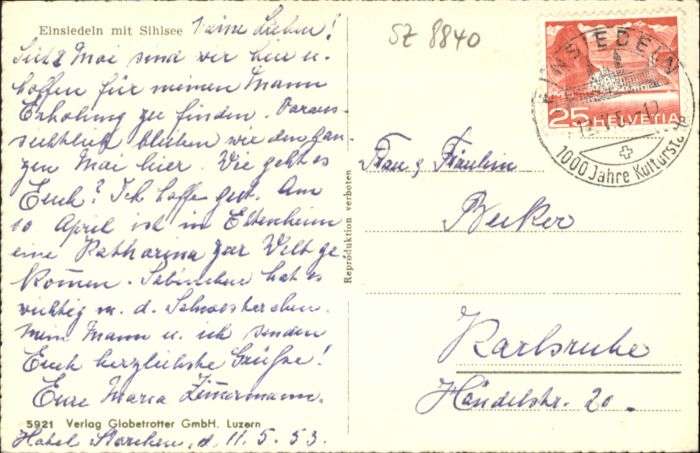 Einsiedeln mit Sihlsee
Meine Lieben!
Seit 2 Mai sind wir hier u.
hoffen für meinen Mann
Erholung zu finden. Voraus-
sichtlich bleiben wir den gan-
zen Mai hier. Wie geht es
Euch? Ich hoffe gut. Am
10 April ist in Ettenheim
eine Katharina zur Welt ge
kommen. Sabinchen hat es
wichtig m. d. Schwesterchen.
Mein Mann u. ich senden
Euch herzlichste Grüsse!
Eure Maria Zimmermann.
5921 Verlag Globetrotter GmbH. Luzern
Hotel Storchen, d. 11.5.53.
Reproduktion verboten
SZ 8840
25 HELVETIA
EINSIEDELN
1000 Jahre Kulturstätte
Frau & Fräulein
Becker
Karlsruhe
Händelstr. 20.